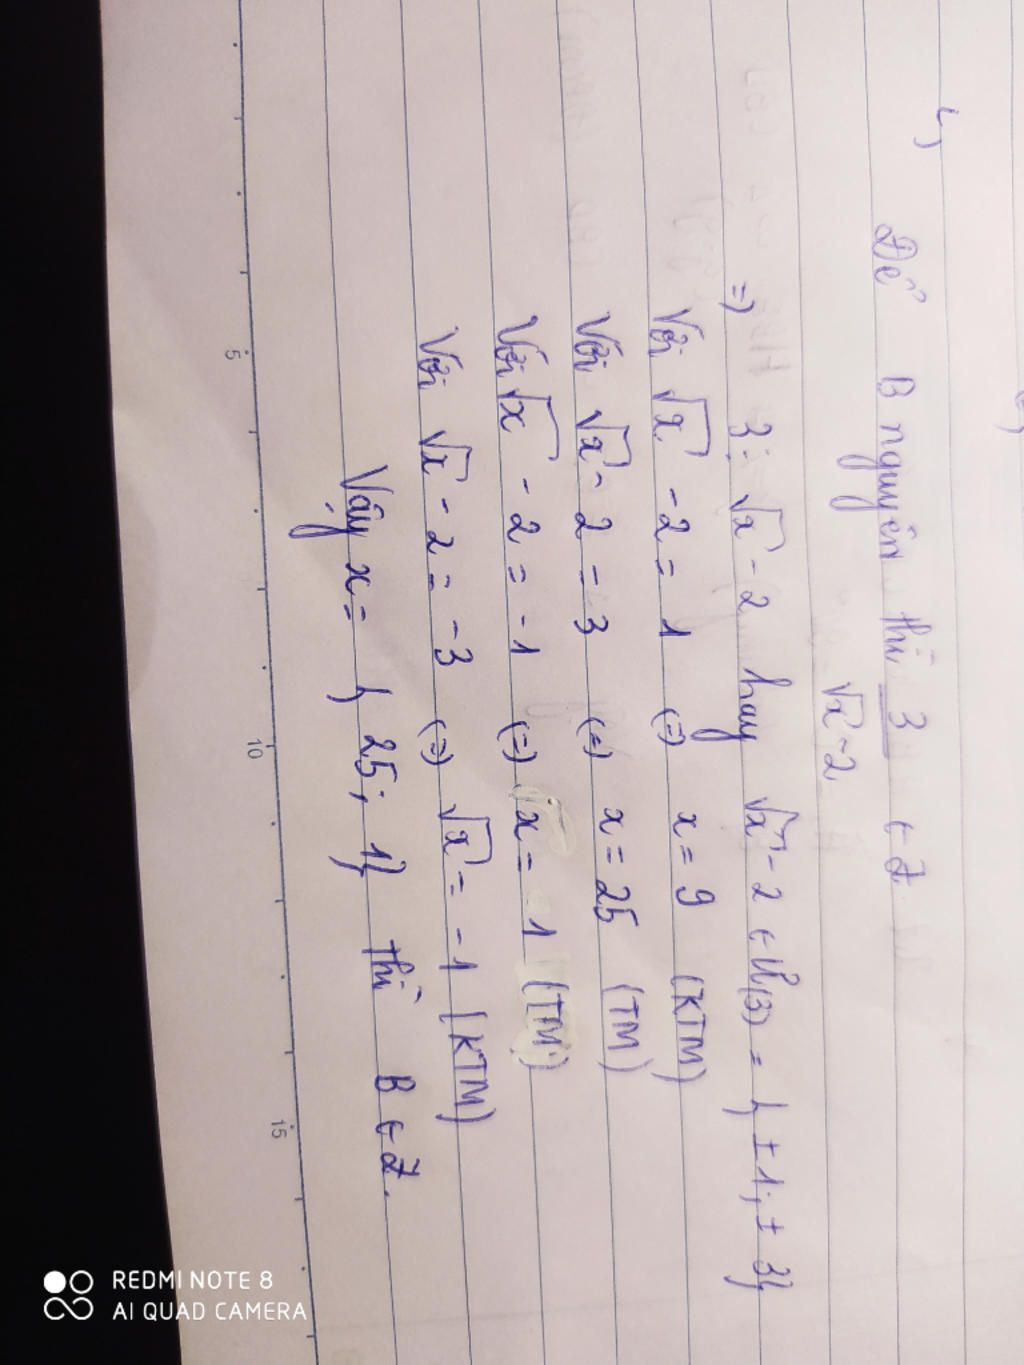 c)
Để B nguyên thì 3/(√x - 2) ∈ Z
=) 3 ⋮ √x - 2 hay √x - 2 ∈ Ư(3) = { ±1; ±3}
Với √x - 2 = 1 (=) x = 9 (KTM)
Với √x - 2 = 3 (=) x = 25 (TM)
Với √x - 2 = -1 (=) x = 1 (TM)
Với √x - 2 = -3 (=) √x = -1 (KTM)
Vậy x = { 25; 1} thì B ∈ Z.
5
10
15
REDMI NOTE 8
AI QUAD CAMERA